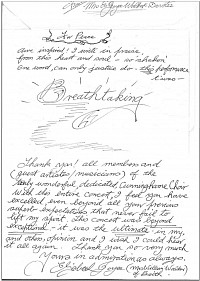 Mrs. Joyce
am inspired! I write in praise,
from this heart and soul —
one word, can only justice do — this performance
it was —
Breathtaking
Thank you! all members and
(guest artistes/musicians) of the
wonderful, dedicated, Cunningham Choir
With this entire concert, I feel you have
excelled even beyond all your previous
superb expectations that never fail to
lift my spirit. This concert was beyond
exceptional — it was the ultimate in my,
and others opinion, and I wish I could hear
it all again. Thank you so very much
Yours in admiration as always.
Joyce